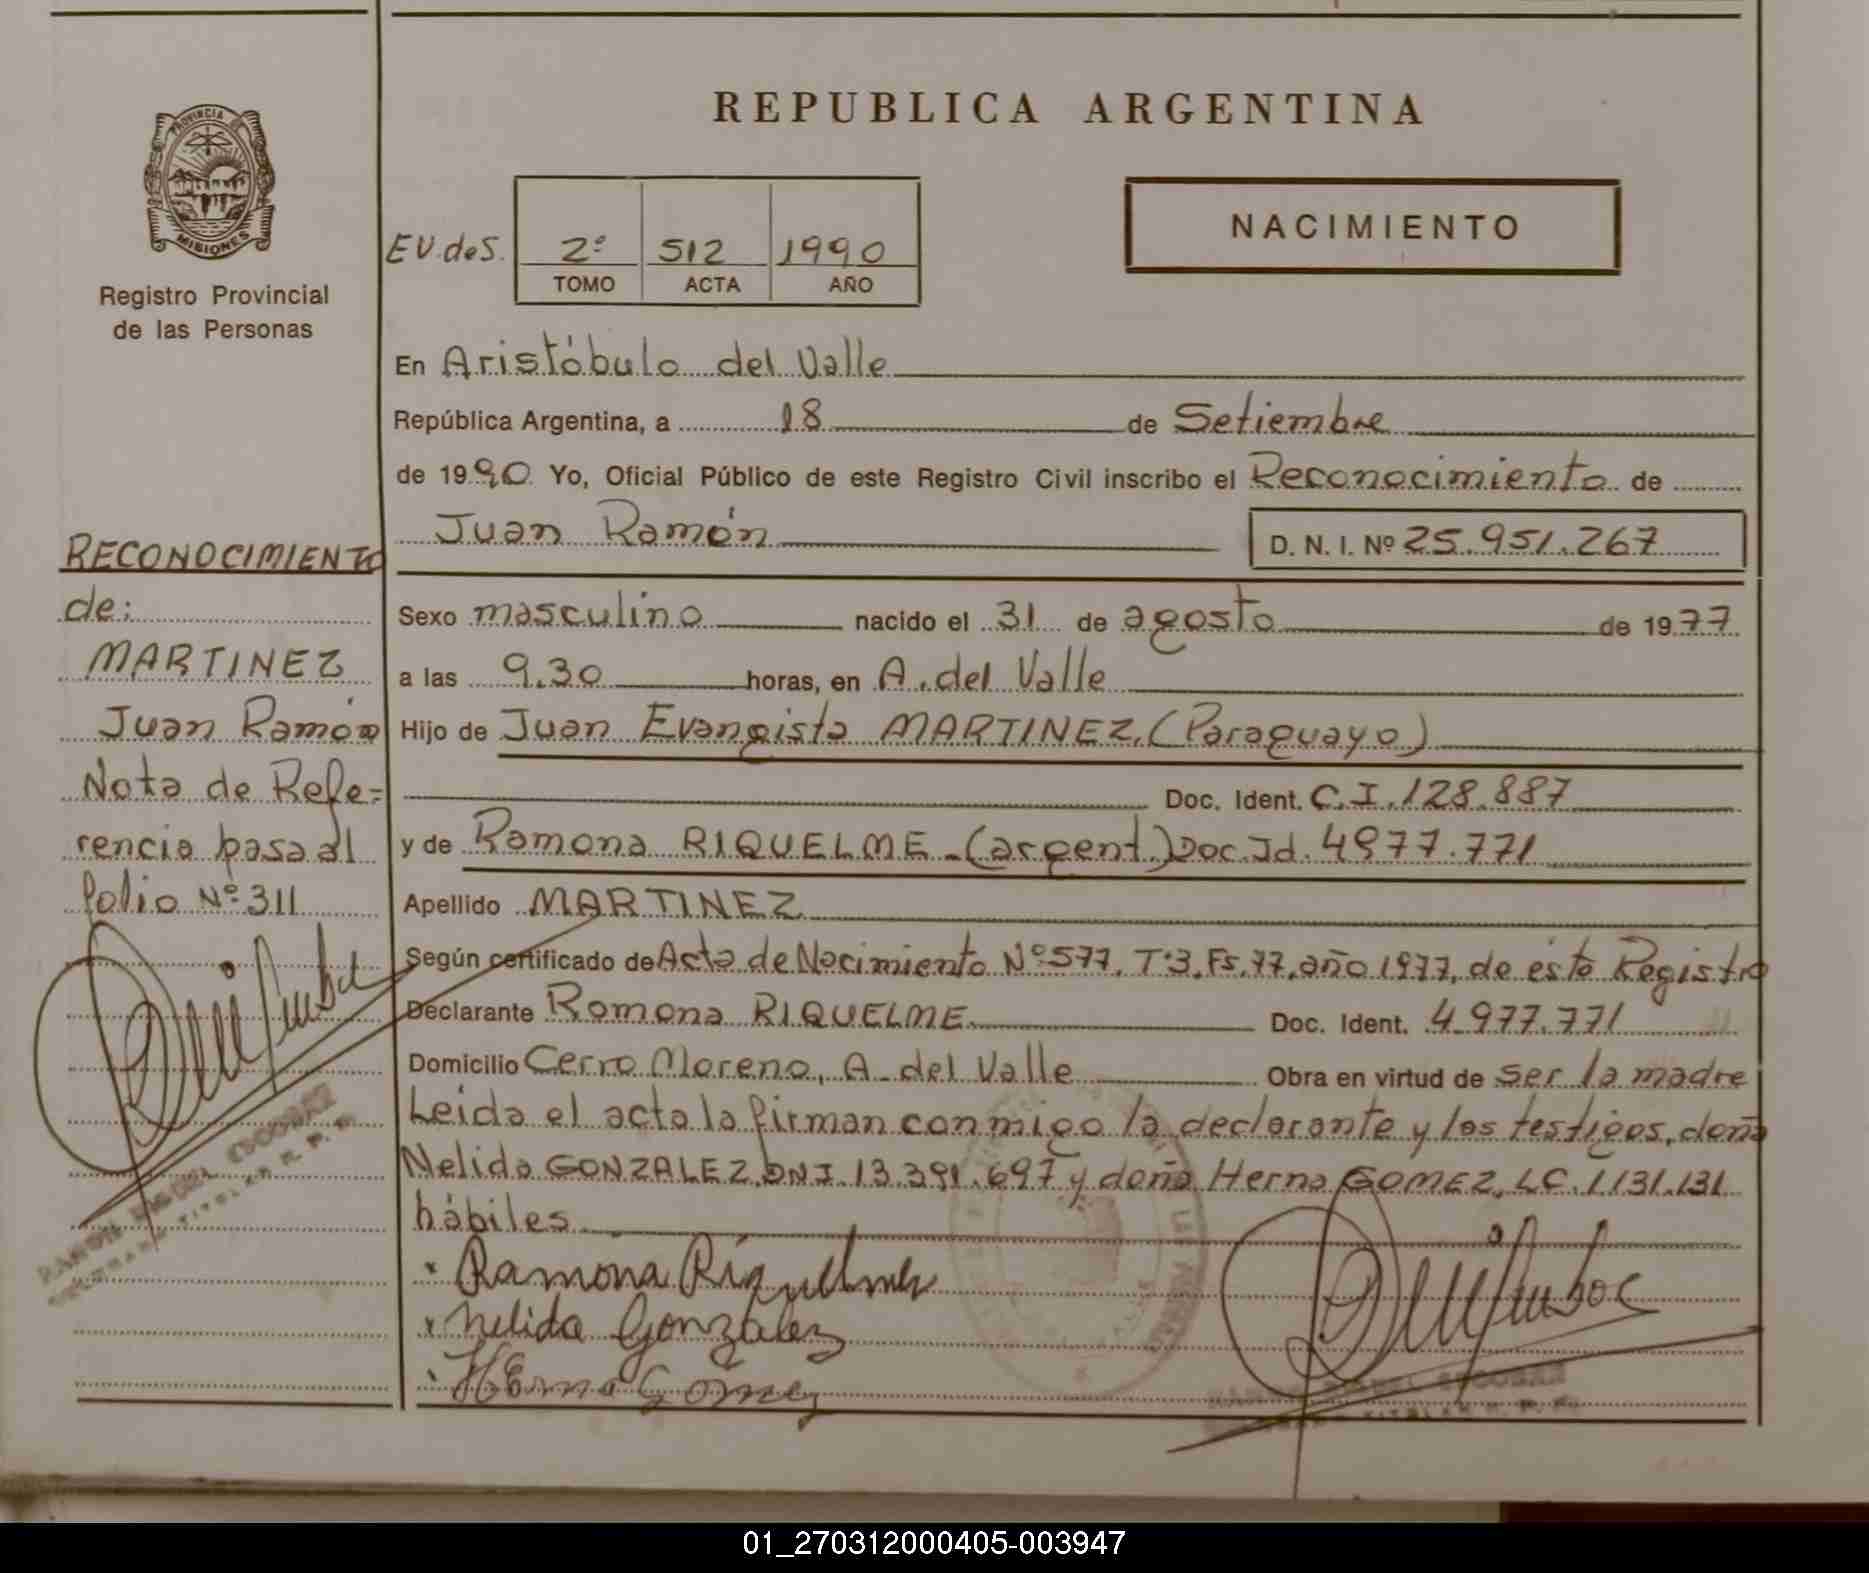 REPUBLICA ARGENTINA
PROVINCIA DE
MISIONES
Registro Provincial
de las Personas
EV.deS.
2º 512 1990
TOMO ACTA AÑO
NACIMIENTO
En Aristóbulo del Valle
República Argentina, a 18 de Setiembre
de 1990 Yo, Oficial Público de este Registro Civil inscribo el Reconocimiento de
Juan Ramón D. N. I. Nº 25.951.267
Sexo masculino nacido el 31 de agosto de 1977
a las 9.30 horas, en A. del Valle
Hijo de Juan Evangista MARTINEZ (Paraguayo)
Doc. Ident. C.I. 128.887
y de Ramona RIQUELME - (argent.) Doc. Id. 4977.771
Apellido MARTINEZ
Según certificado de Acta de Nacimiento Nº 577. T.3. Fs. 77. año 1977, de éste Registro
Declarante Ramona RIQUELME Doc. Ident. 4.977.771
Domicilio Cerro Moreno, A. del Valle Obra en virtud de ser la madre
Leida el acta la firman conmigo la declarante y los testigos, doña
Nelida GONZALEZ, DNI. 13.391.697 y doña Herna GOMEZ, LC. 1.131.131
hábiles
Ramona Riquelme
Nelida Gonzalez
Herna Gomez
RECONOCIMIENTO
de:
MARTINEZ
Juan Ramón
Nota de Refe=
rencia pasa al
folio Nº 311
ESCOBAR
TITULAR R. P. P.
ESCOBAR
TITULAR R. P. P.
01_270312000405-003947